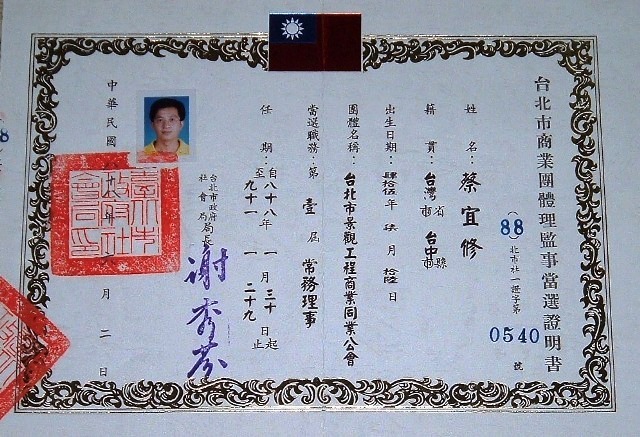 台北市商業團體理監事當選證明書
(88)北市社一證字第0540號
姓名：蔡宜修
籍貫：台灣省市台中縣市
出生日期：肆拾伍年柒月拾陸日
團體名稱：台北市景觀工程商業同業公會
當選職務：第壹屆常務理事
任期：自八十八年一月三十日起
至九十一 一 二十九止
台北市政府社會局局長
謝秀芬
中華民國 年 月二日